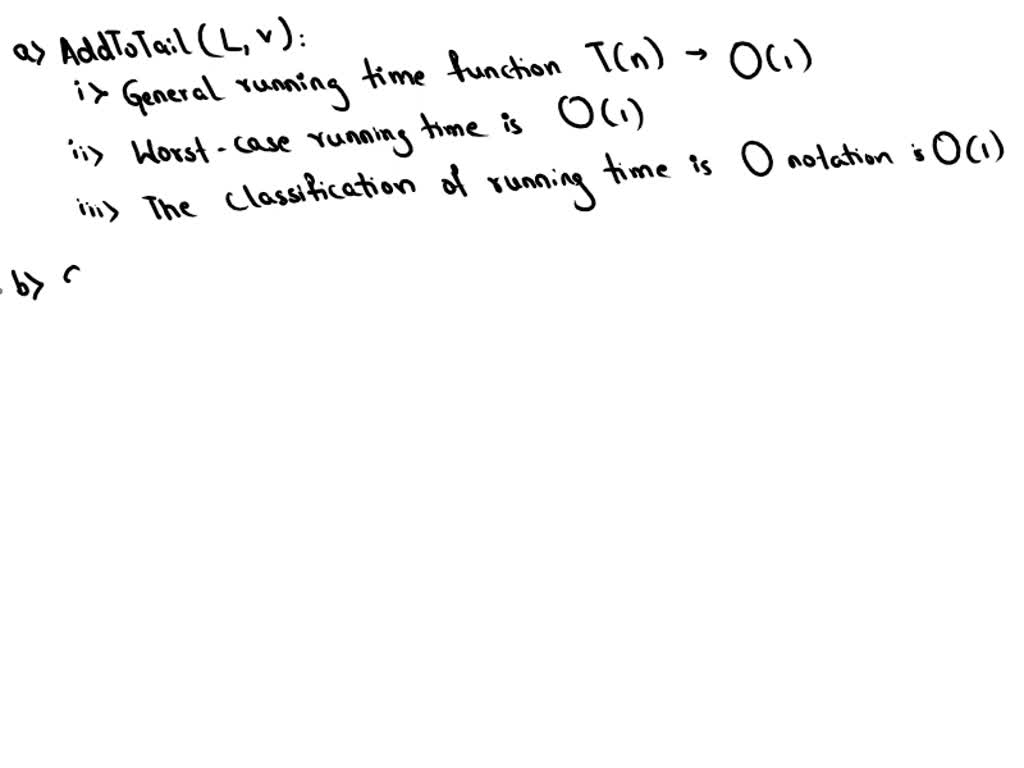 a> AddToTail(L, v):
i> General running time function T(n) → O(1)
ii> Worst-case running time is O(1)
iii> The classification of running time is O notation is O(1)
b>